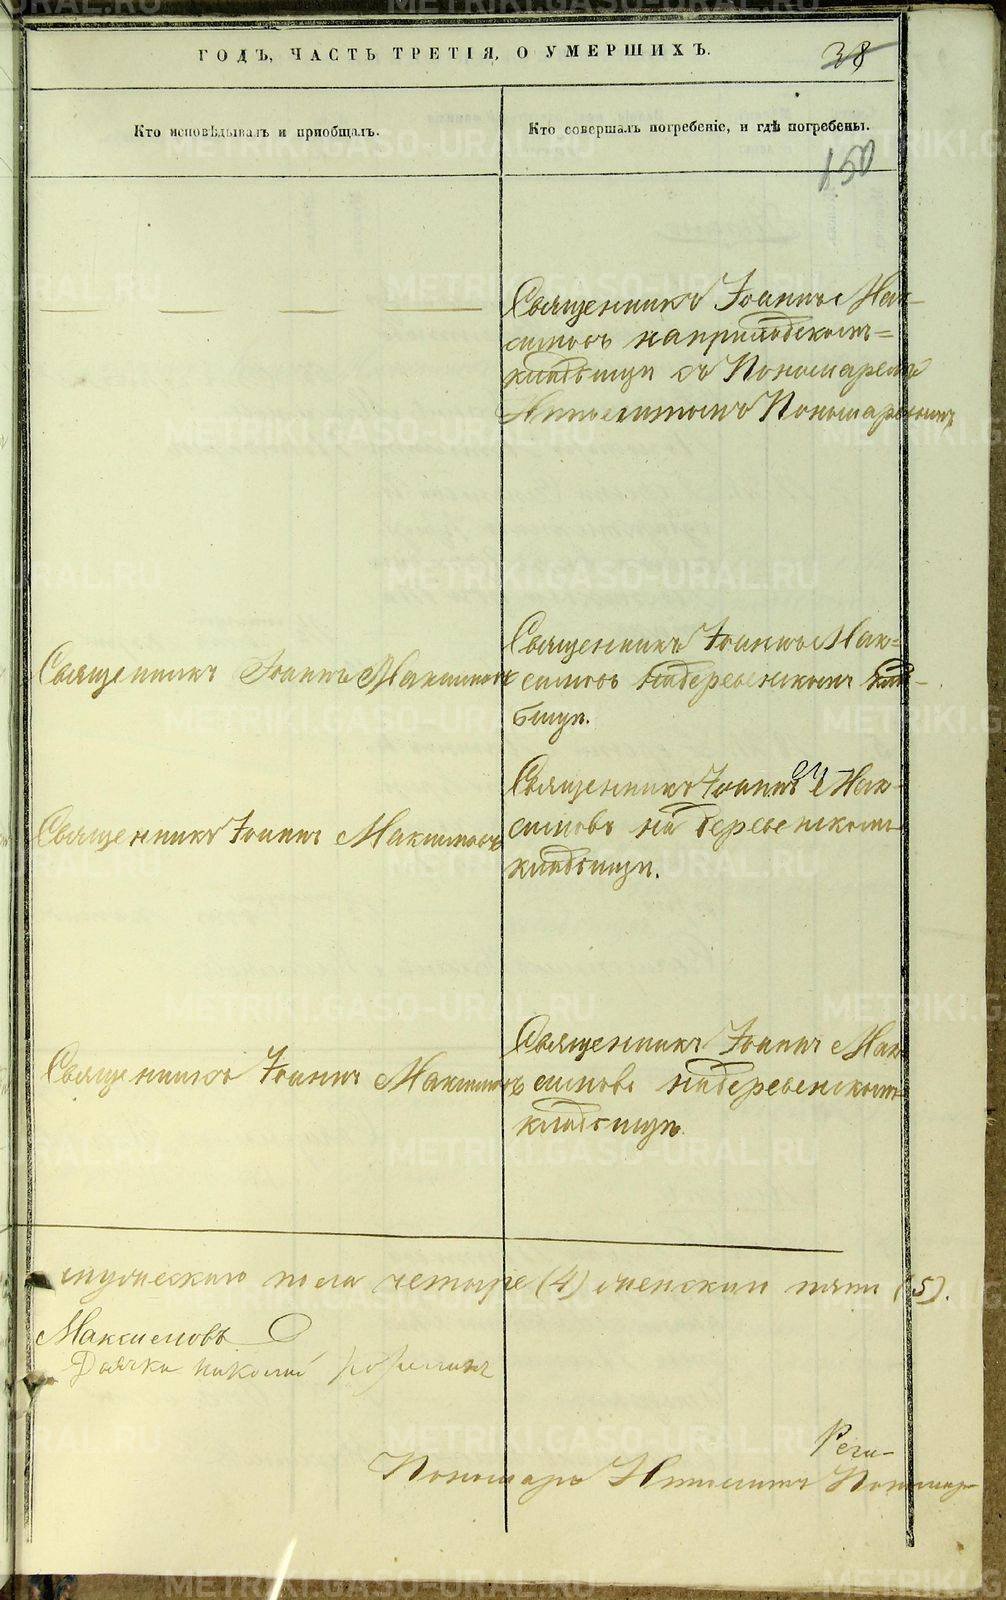 ГОДЪ, ЧАСТЬ ТРЕТІЯ, О УМЕРШИХЪ.
38
Кто исповѣдывалъ и пріобщалъ.
Кто совершалъ погребеніе, и гдѣ погребены.
150
Священникъ Іоаннъ Мак-
симовъ на приходскомъ
кладбищѣ съ Пономаремъ
Пономаревымъ
Священникъ Іоаннъ Максимовъ
Священникъ Іоаннъ Мак-
симовъ на деревенскомъ клад-
бищѣ.
Священникъ Іоаннъ Максимовъ
Священникъ Іоаннъ Мак-
симовъ на деревенскомъ
кладбищѣ.
Священникъ Іоаннъ Максимовъ
Священникъ Іоаннъ Мак-
симовъ на деревенскомъ
кладбищѣ
мужескаго пола четыре (4) женскаго пять (5).
Максимовъ
Дьячекъ Николай
Пономарь
METRIKI.GASO-URAL.RU